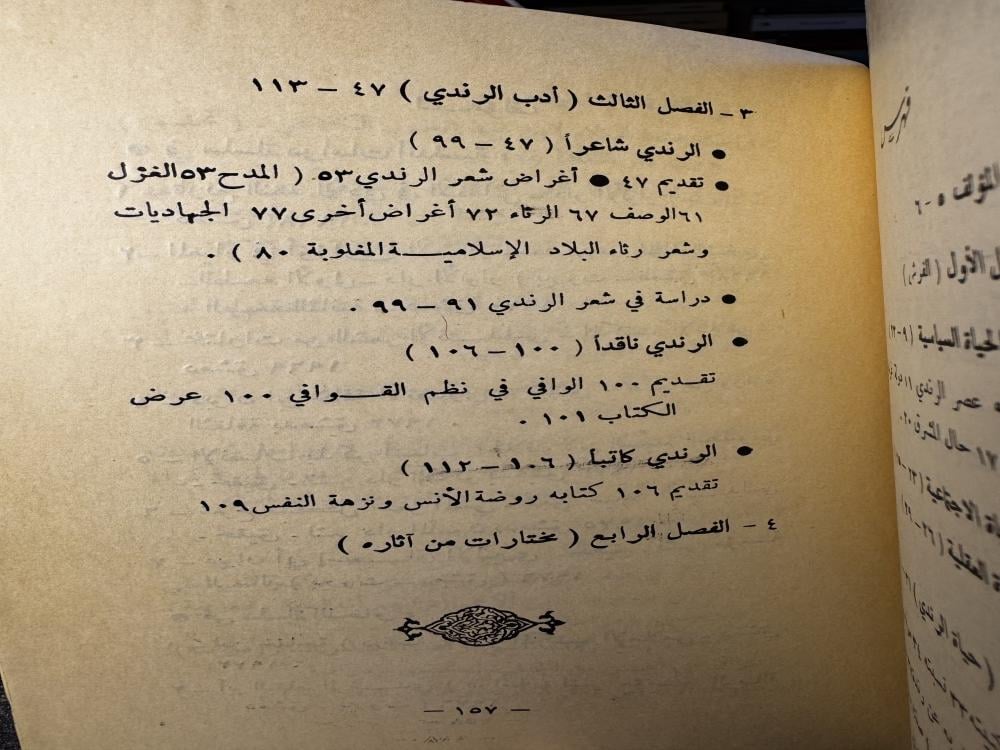 ٣ - الفصل الثالث ( أدب الرندي ) ٤٧ - ١١٣
● الرندي شاعراً ( ٤٧ - ٩٩ )
● تقديم ٤٧ ● أغراض شعر الرندي ٥٣ ( المدح ٥٣ الغزل
٦١ الوصف ٦٧ الرثاء ٧٢ أغراض أخرى ٧٧ الجهاديات
وشعر رثاء البلاد الإسلامية المغلوبة ٨٠ ) .
● دراسة في شعر الرندي ٩١ - ٩٩ .
● الرندي ناقداً ( ١٠٠ - ١٠٦ )
تقديم ١٠٠ الوافي في نظم القوافي ١٠٠ عرض
الكتاب ١٠١ .
● الرندي كاتباً ( ١٠٦ - ١١٢ )
تقديم ١٠٦ كتابه روضة الأنس ونزهة النفس ١٠٩
٤ - الفصل الرابع ( مختارات من آثاره )
- ١٥٧ -
فهرس
المؤلف ٥-٦
الأول ( الفرش )
الحياة السياسية ( ٩-٢٣
عصر الرندي ١١
١٧ حال المشرق ٢٠
الاجتماعية ( ٢٣
العقلية ( ٢٦ - ٢٩
( حياة الرندي ) ٣١